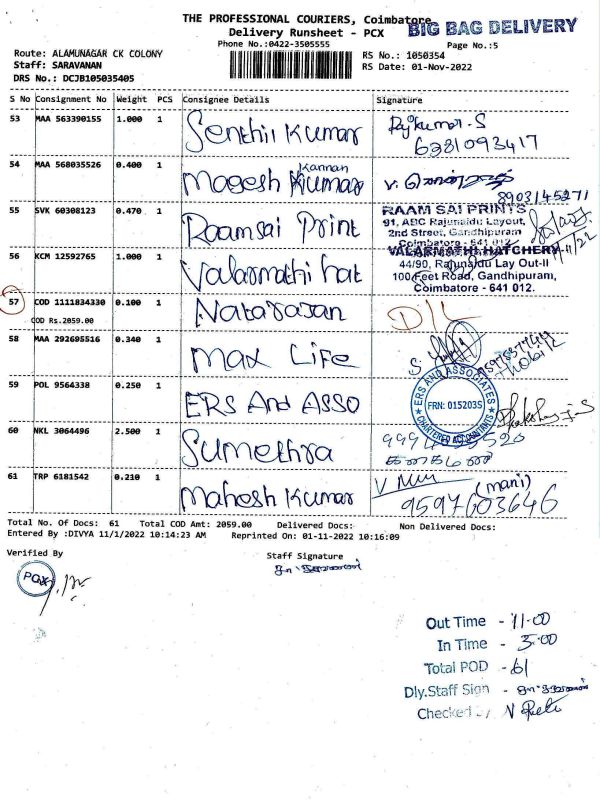 THE PROFESSIONAL COURIERS, Coimbatore
BIG BAG DELIVERY
Delivery Runsheet - PCX
Phone No.:0422-3505555
Page No.:5
Route: ALAMUNAGAR CK COLONY
RS No.: 1050354
Staff: SARAVANAN
RS Date: 01-Nov-2022
DRS No.: DCJB105035405
S No Consignment No Weight PCS Consignee Details Signature
53 MAA 563390155 1.000 1 Senthil Kumar Rajkumar.S
6381093417
54 MAA 568035526 0.400 1 Magesh Kumar
Kannan
8903145271
55 SVK 60308123 0.470 1 Raamsai Print
RAAM SAI PRINTS
91, ABC Rajunaidu Layout,
2nd Street, Gandhipuram
Coimbatore - 641 012
56 KCM 12592765 1.000 1 Valarmathi hat
VALARMATHI HATCHERY
44/90, Rajunaidu Lay Out-II
100 Feet Road, Gandhipuram,
Coimbatore - 641 012.
57 COD 1111834330 0.100 1 Natarajan D/L
COD Rs.2059.00
58 MAA 292695516 0.340 1 Max Life
59 POL 9564338 0.250 1 ERS And ASSO
ERS AND ASSOCIATES
FRN: 015203S
CHARTERED ACCOUNTANTS
60 NKL 3064496 2.500 1 Sumethra
61 TRP 6181542 0.210 1 Mahesh Kumar
(mani)
9597603646
Total No. Of Docs: 61 Total COD Amt: 2059.00 Delivered Docs: Non Delivered Docs:
Entered By :DIVYA 11/1/2022 10:14:23 AM Reprinted On: 01-11-2022 10:16:09
Verified By
Staff Signature
PCX
Out Time - 11-00
In Time - 3-00
Total POD - 61
Dly.Staff Sign -
Checked By